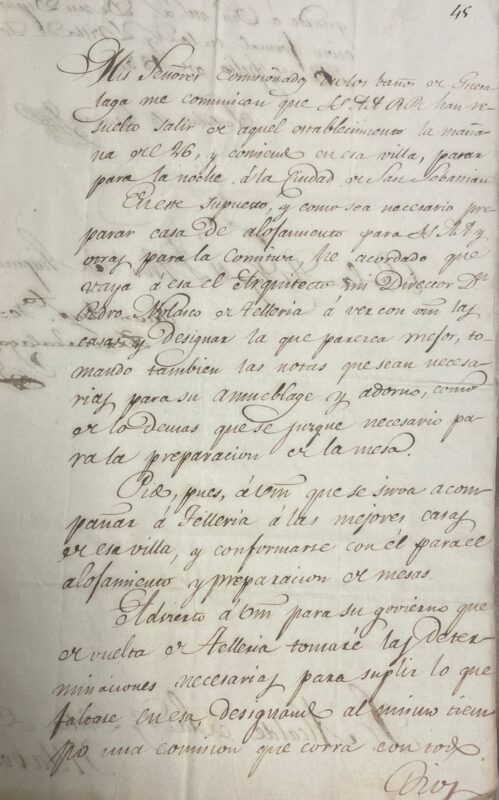 48
Mis Señores Comisionados en los baños de Guesa-
laga me comunican que SS.AA.RR. han re-
suelto salir de aquel establecimiento la maña-
na del 26, y comiendo en esa villa, pasar
para la noche á la Ciudad de San Sebastian
En este supuesto, y como sea necesario pre-
parar casa de alojamiento para SS.AA. y
otras para la comitiva, he acordado que
vaya á esa el Arquitecto mi Director Dn
Pedro Nolasco de Telleria á ver con vm las
casas y designar la que parezca mejor, to-
mando tambien las notas que sean necesa-
rias para su amueblage y adorno, como
de lo demas que se juzgue necesario pa-
ra la preparacion de la mesa.
Pido, pues, á vm que se sirva acom-
pañar á Telleria á las mejores casas
de esa villa, y conformarse con él para el
alojamiento y preparacion de mesas.
Advierto á vm para su govierno que
de vuelta de Telleria tomaré las deter-
minaciones necesarias para suplir lo que
faltase en esa, designando al mismo tiem-
po una comision que corra con todo.
Dios